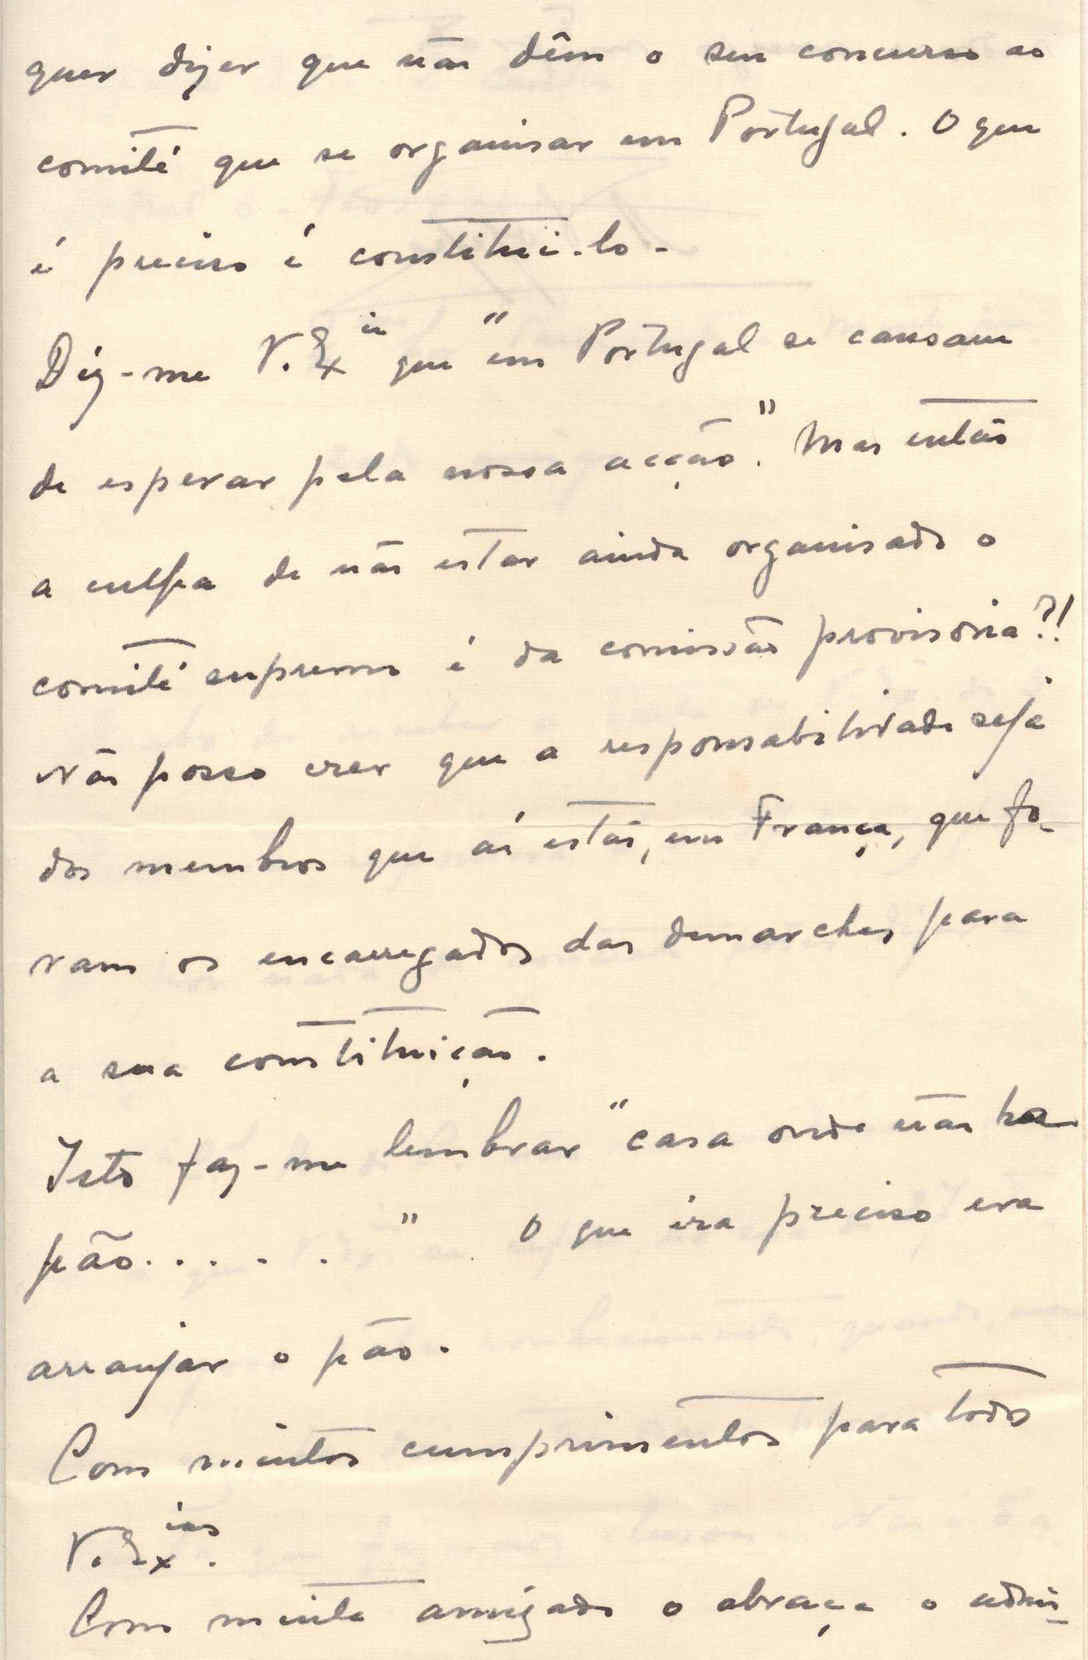 quer dizer que não dêm o seu concurso ao
comité que se organisar em Portugal. O que
é preciso é constitui-lo -
Diz-me V. Ex.ia que "em Portugal se cansam
de esperar pela nossa acção". Mas então
a culpa de não estar ainda organisado o
comité supremo é da comissão provisoria?!
Não posso crer que a responsabilidade seja
dos membros que aí estão, em França, que fo-
ram os encarregados das demarches para
a sua constituição.
Isto faz-me lembrar "casa onde não ha
pão....." O que era preciso era
arranjar o pão.
Com muitos cumprimentos para todos
V. Ex.ias
Com muita amizade o abraça o admi-